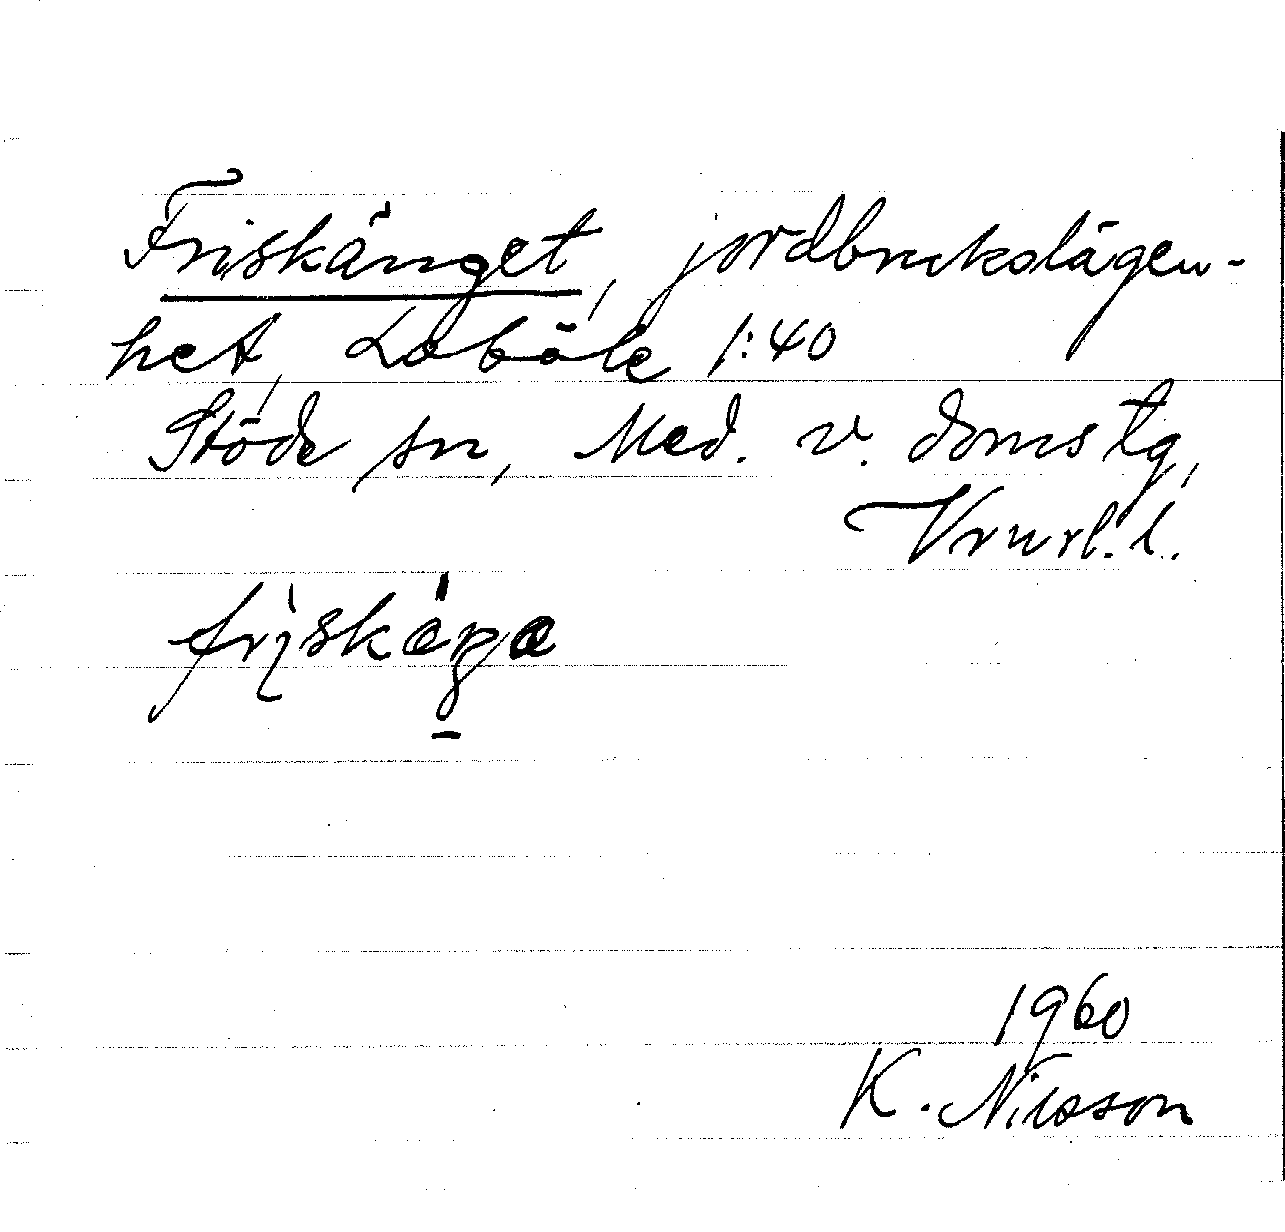 Friskänget, jordbrukslägen-
het, Loböle 1:40
Stöde sn, Med. v. domstg,
Vrnrl. l.
friskäŋa
1960
K. Nilsson